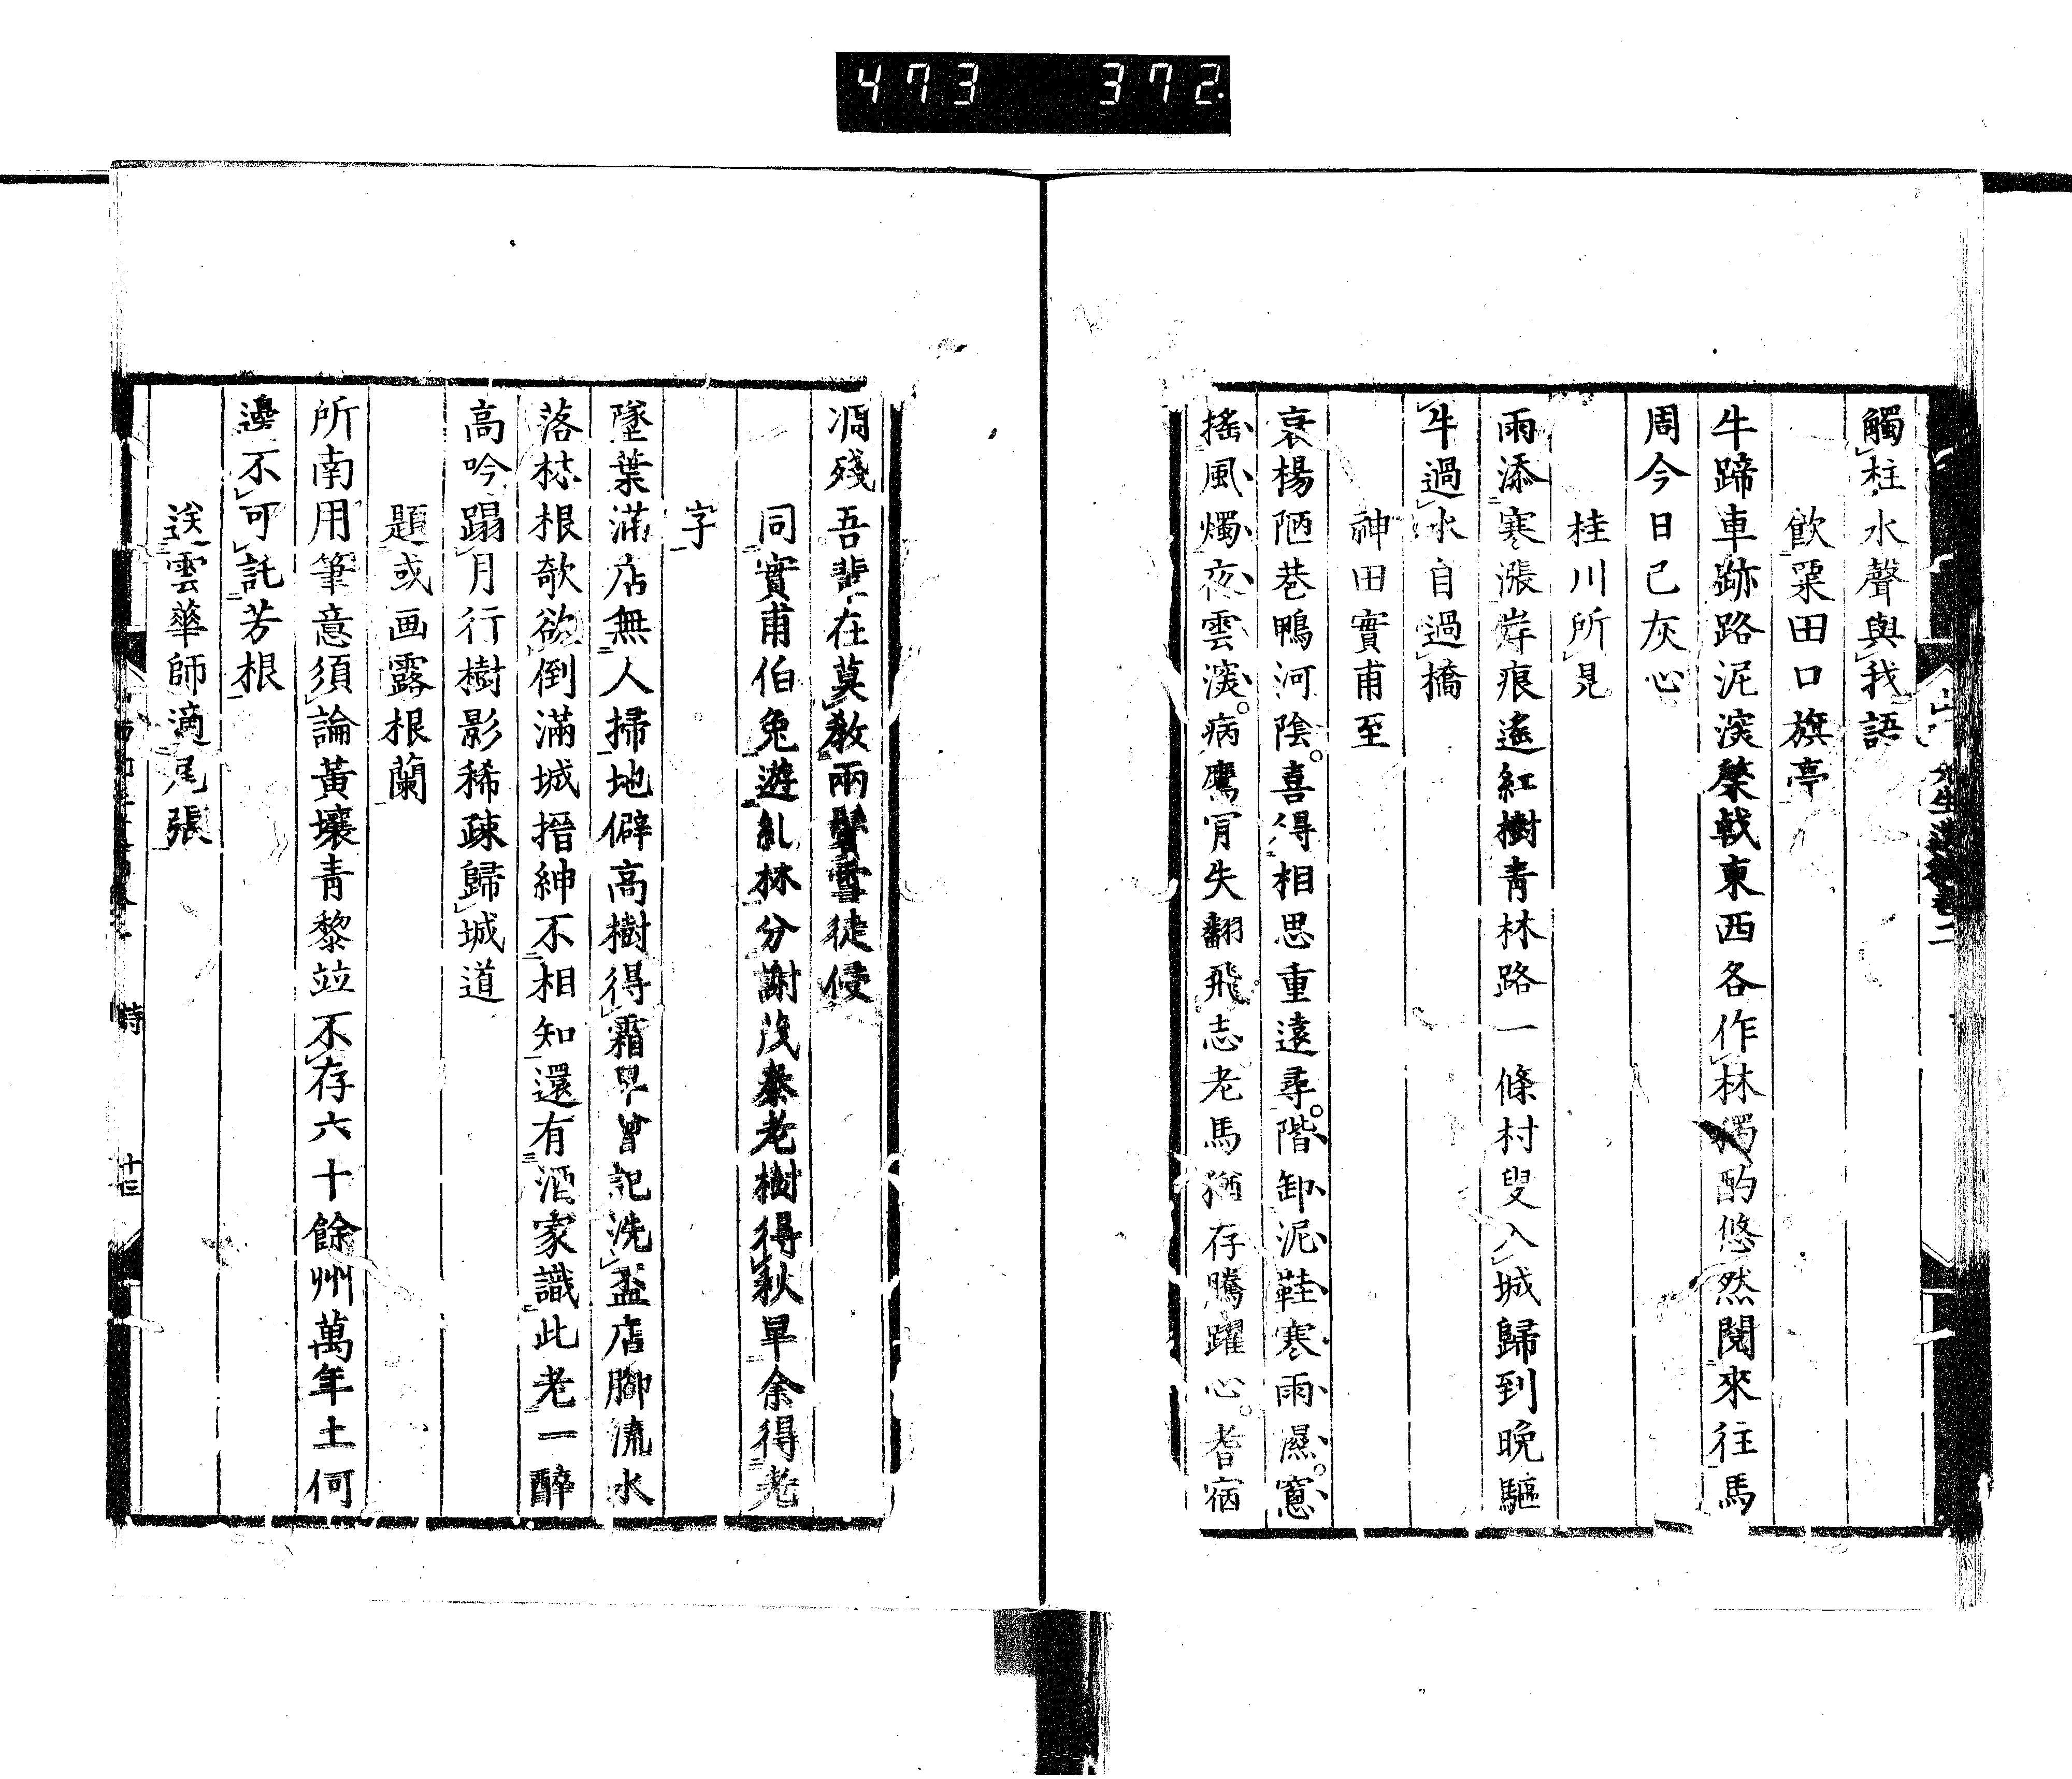 473 372.
觸柱水聲與我語
飲粟田口旗亭
牛蹄車跡路泥深棨戟東西各作林獨酌悠然閱來往馬
周今日已灰心
桂川所見
雨添寒漲岸痕遙紅樹青林路一條村叟入城歸到晚驅
牛過水自過橋
神田實甫至
衰楊陋巷鴨河陰喜得相思重遠尋階卸泥鞋寒雨濕窻
搖風燭夜雲深病鷹肎失翻飛志老馬猶存騰躍心耆宿
凋殘吾輩在莫教兩鬢雪徒侵
同實甫伯兔遊糺林分謝茂秦老樹得秋早余得老
字
墜葉滿店無人掃地僻高樹得霜早曾記洗盃店腳流水
落枯根欹欲倒滿城搢紳不相知還有酒家識此老一醉
高吟蹋月行樹影稀疎歸城道
題或画露根蘭
所南用筆意須論黃壤青黎竝不存六十餘州萬年土何
邊不可託芳根
送雲華師適尾張
詩 十三